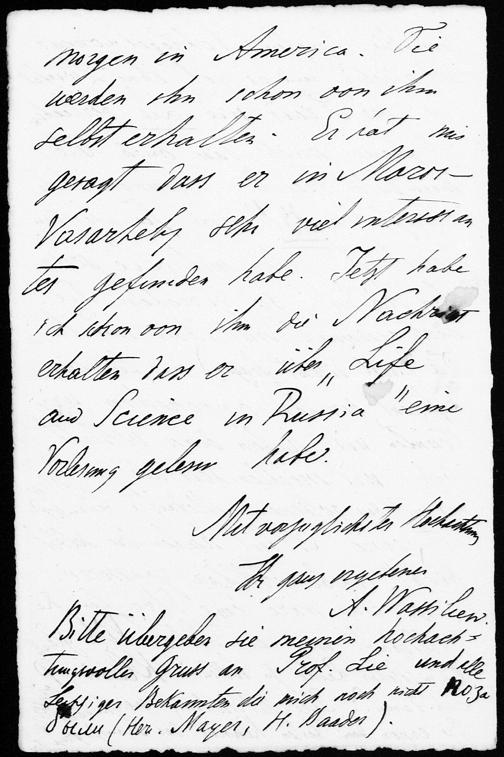 morgen in America. Sie
werden ihn schon von ihm
selbst erhalten. Er hat mir
gesagt dass er in Maros-
Vasarhely sehr viel interessan
tes gefunden habe. Jetzt habe
ich schon von ihm die Nachricht
erhalten dass er über „Life
and Science in Russia" eine
Vorlesung gelesen habe.
Mit vorzüglichster Hochachtung
Ihr ganz ergebener
A. Wassiliew.
Bitte übergeben sie meinen hochach-
tungsvollen Gruss an Prof. Lie und alle
Leipziger Bekannten die mich noch nicht поза
были (Herr. Mayer, H. Baader).